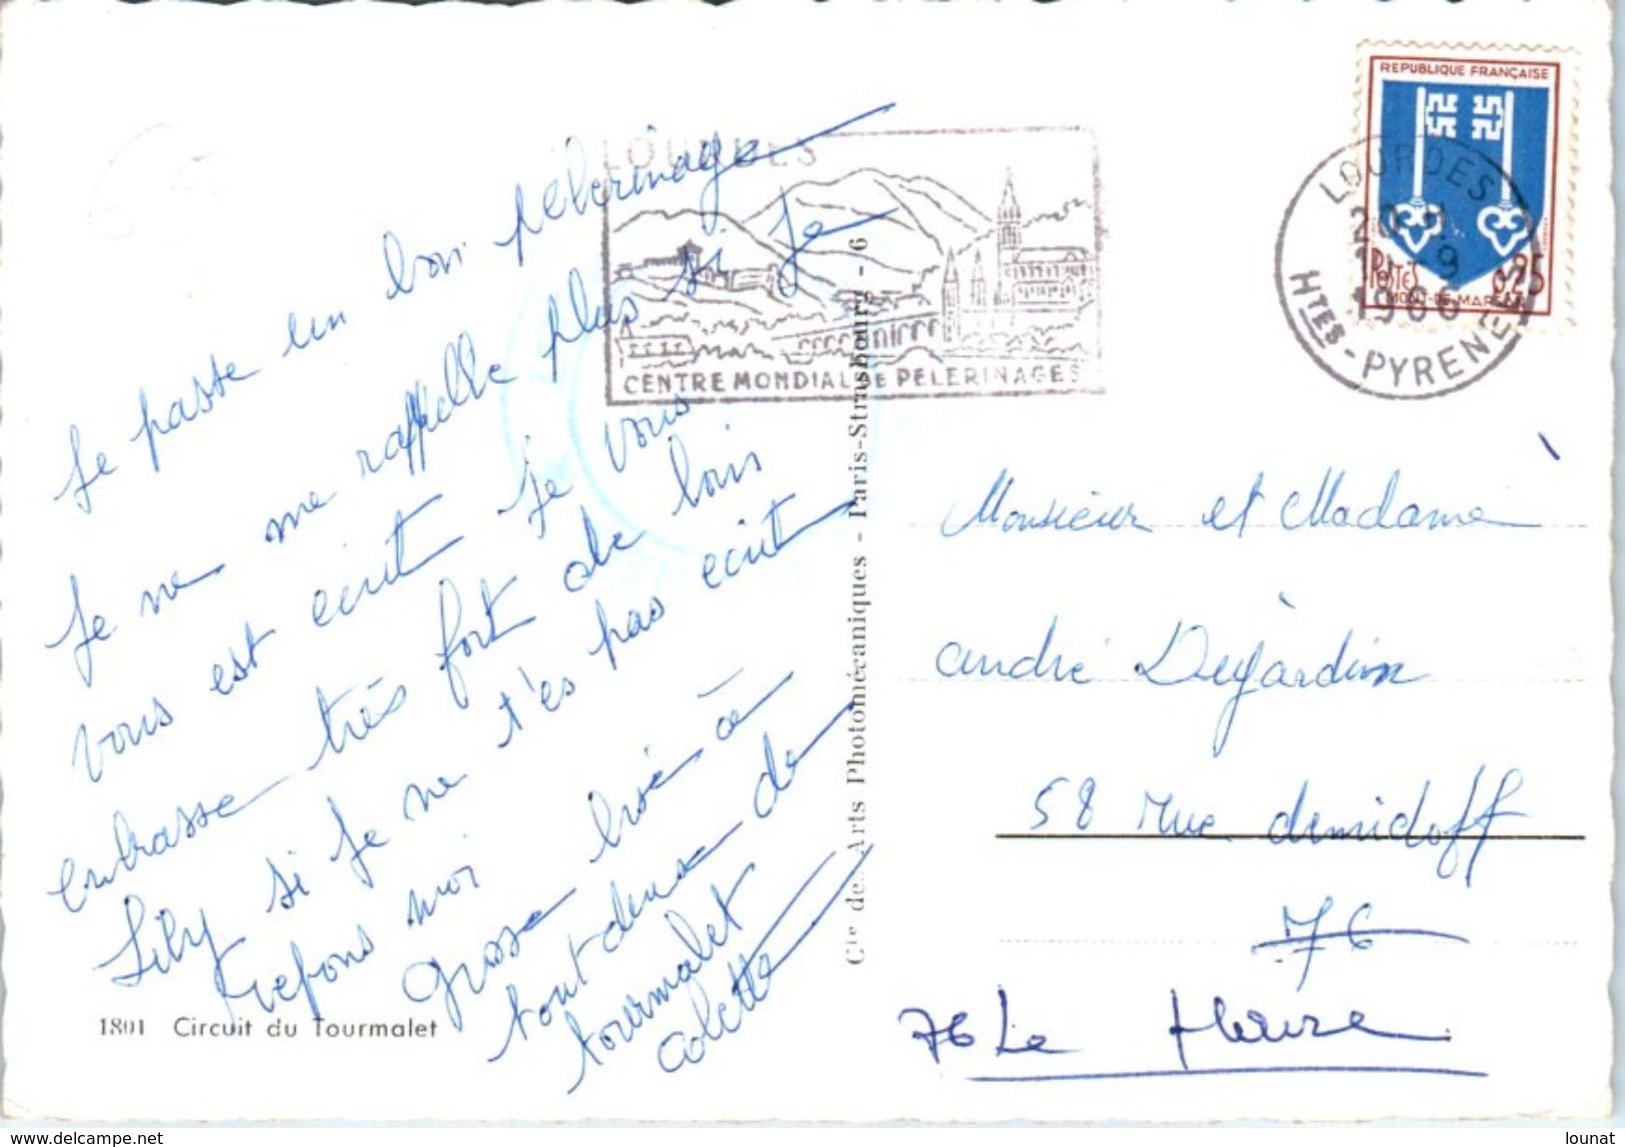 Je passe un bon pelerinage
Je ne me rappelle plus si je
vous est ecrit je vous
embrasse très fort de loin
Lily si je ne t'es pas ecrit
repons moi
grosse bisé à
tout deux de
tourmalet
Colette
1801 Circuit du Tourmalet
LOURDES
CENTRE MONDIAL DE PELERINAGES
Cte des Arts Photomécaniques - Paris-Strasbourg - 6
REPUBLIQUE FRANÇAISE
POSTES 0,25
MONT-DE-MARSAN
LOURDES
1966
HTES-PYRENEES
Monsieur et Madame
andré Dejardin
58 Rue demidoff
76
76 Le Havre
www.delcampe.net
lounat